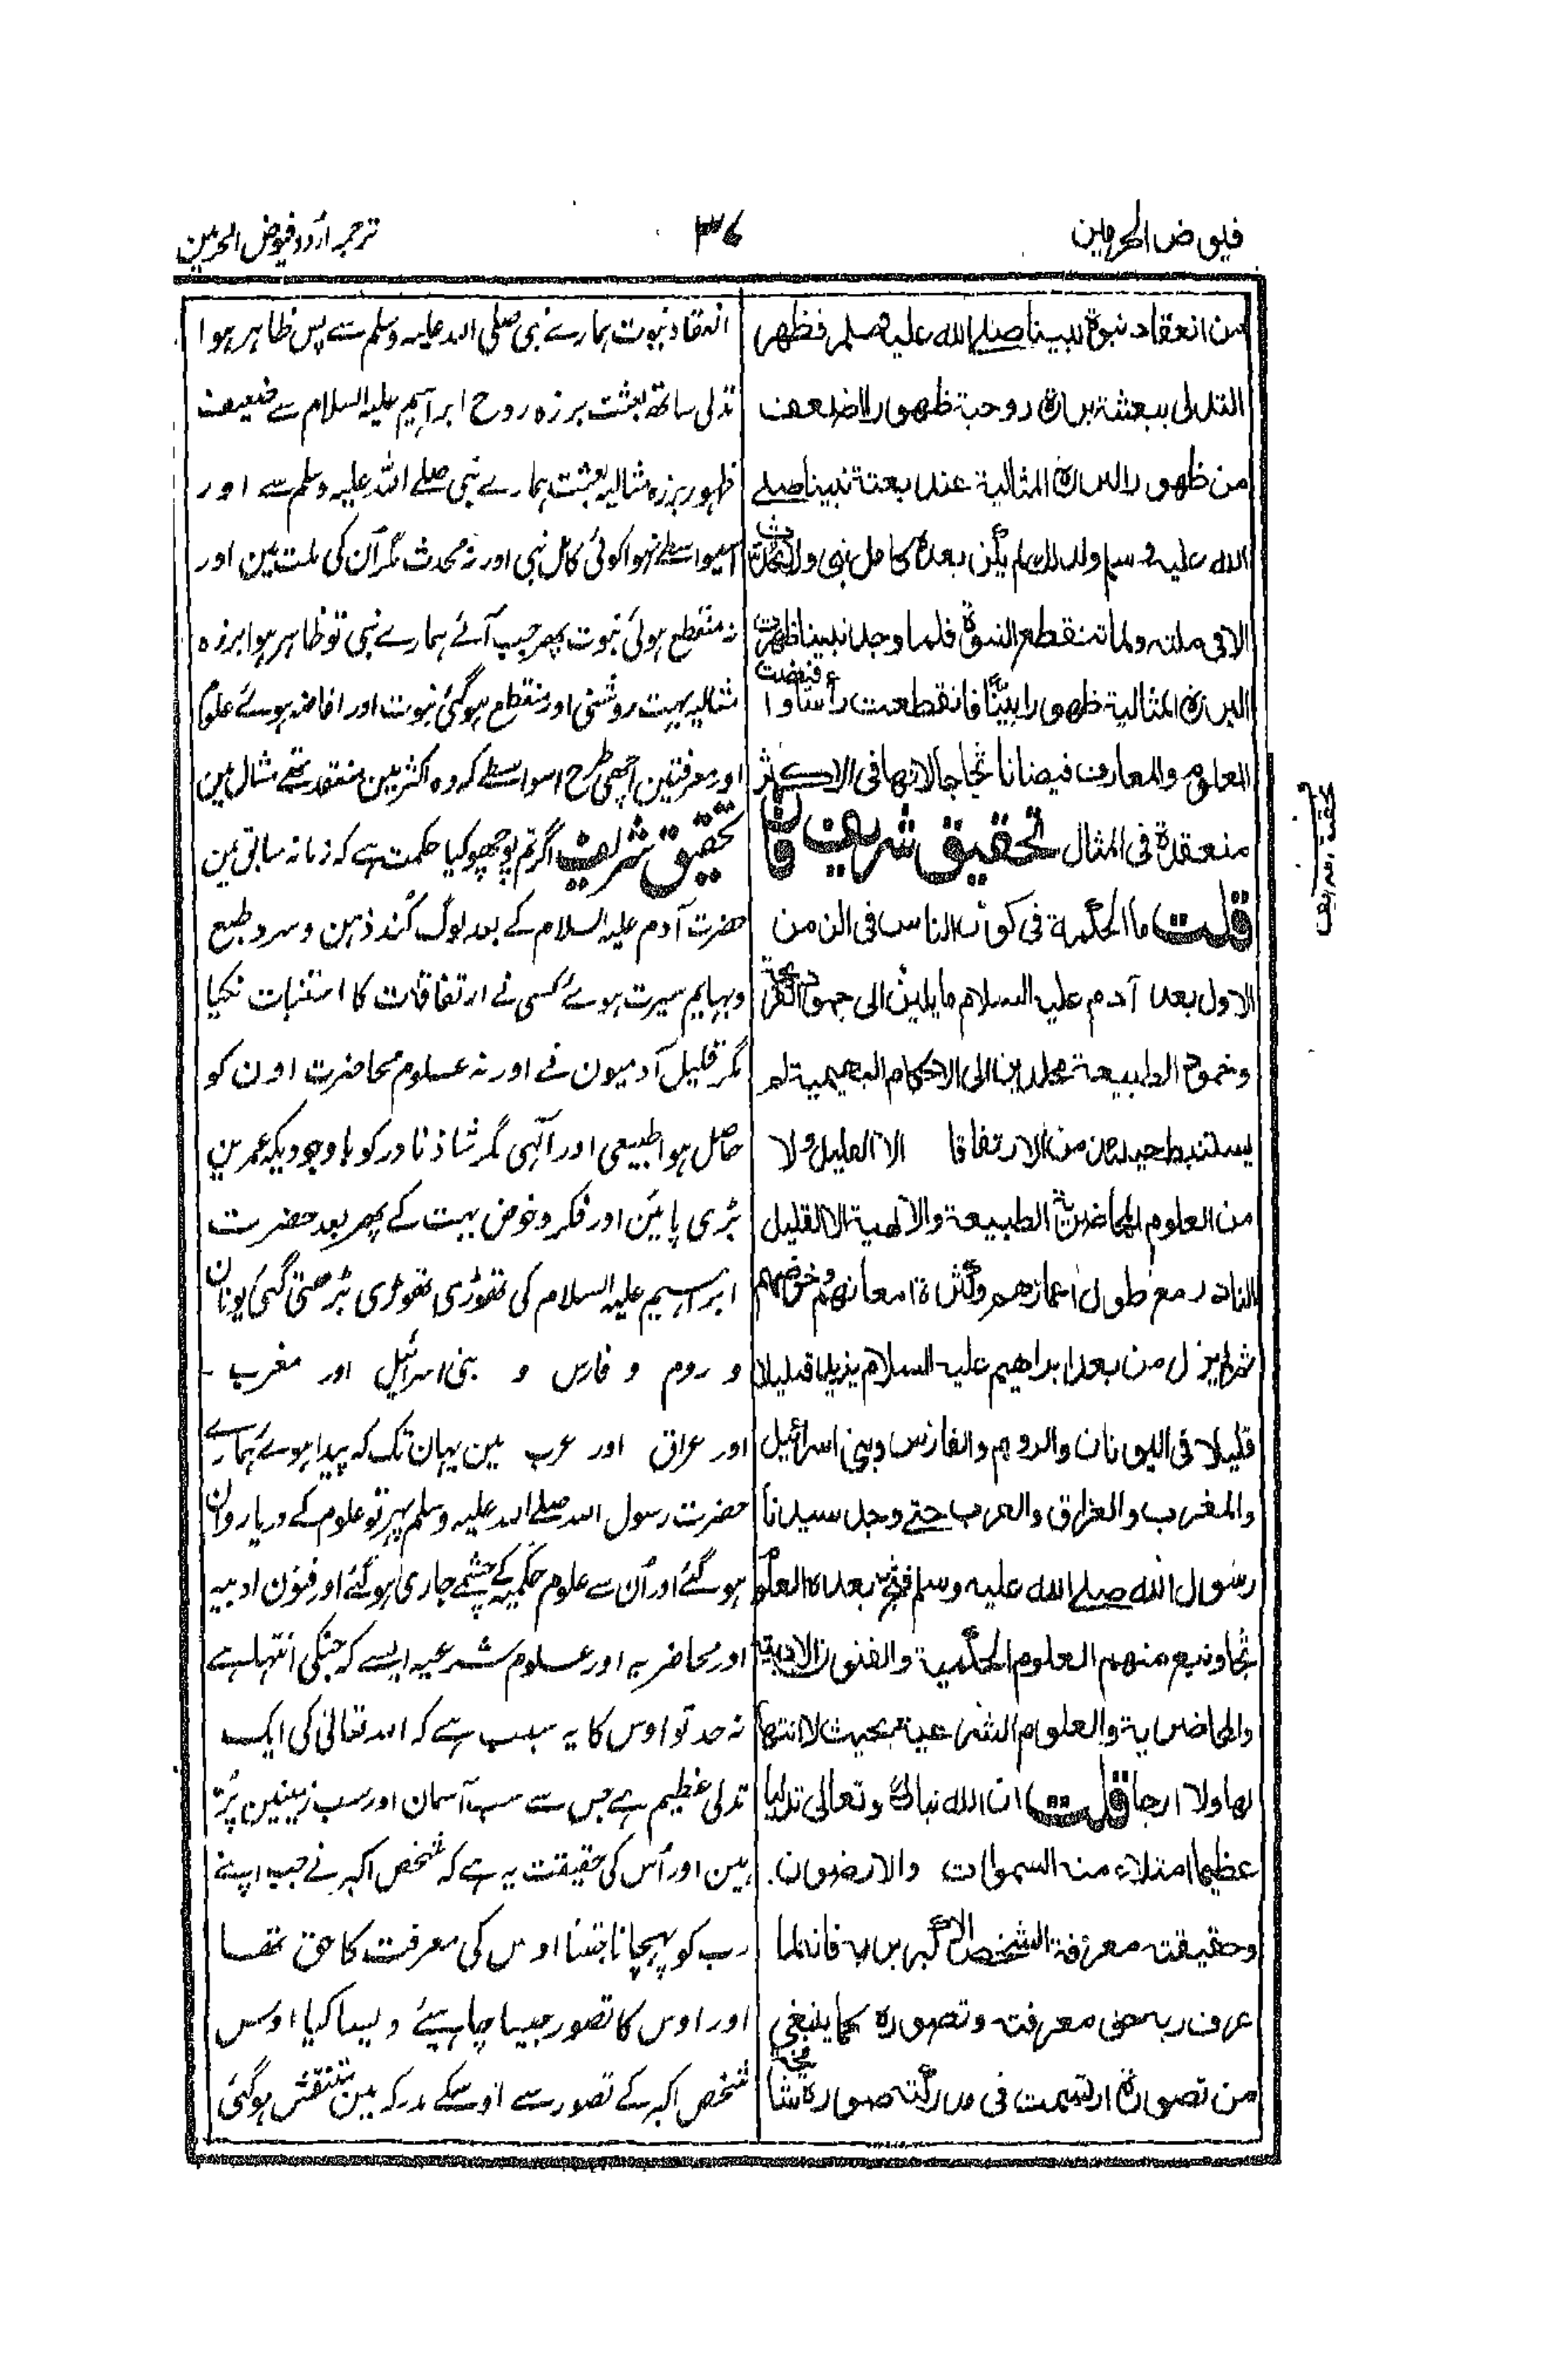 فیوض الحرمین
۳۶
ترجمہ اُردو فیوض الحرمین
من انعقاد نبوۃ نبینا صلے اللہ علیہ وسلم فظهر
التدلی ببعثته برزۃ روحیة ظهورا اضعف
من ظهور البرزۃ المثالیة عند بعثة نبینا صلے
اللہ علیہ وسلم ولذلك لم یکن بعدہ کامل نبی ولا محدث
الا فی ملته ولما تنقطع النبوۃ فلما وجد نبینا ظهرت
البرزۃ المثالیة ظهورا بینًا فانقطعت راسًا و افیضت
العلوم والمعارف فیضانا ثجاجا لانها فی الاکثر
منعقدۃ فی المثال تحقیق شریف فان
قلت ما الحکمة فی کون الناس فی الزمن
الاول بعد آدم علیہ السلام مایلین الی جمود القریحة
وخمود الطبیعة مخلدین الی الاحکام البهیمیة لم
یستنبط من الارتفاقا الا القلیل ولا
من العلوم المحاضریة الطبیعة والالهیة الا القلیل
النادر مع طول اعمارهم وکثرۃ امعانهم وخوضهم
ثم لم یزل من بعد ابراهیم علیہ السلام یزید قلیلا
قلیلا فی الیونان والروم والفارس وبنی اسرائیل
والمغرب والعراق والعرب حتے وجد سیدنا
رسول اللہ صلے اللہ علیہ وسلم بعدہ العلوم
ثجا ونبع منهم العلوم الحکمیة والفنون الادبیة
والمحاضریة والعلوم الشرعیة بحیث لا انتها
لها ولا ارجا قلت ان اللہ تبارك وتعالی تدلیا
عظیما امتلاء منه السموات والارضون.
وحقیقته معرفة الشخص الاکبر بربه فانه لما
عرف ربه حق معرفته وتصورہ کما ینبغی
من تصورہ ارتسمت فی مدرکته صورۃ
انعقاد نبوت ہمارے نبی صلی اللہ علیہ وسلم سے پس ظاہر ہوا
تدلی ساتھ بعثت برزہ روح ابراہیم علیہ السلام سے ضعیف
ظہور برزہ مثالیہ بعثت ہمارے نبی صلے اللہ علیہ وسلم سے اور
اسیواسطے نہوا کوئی کامل نبی اور نہ محدث مگر اُن کی ملت مین اور
نہ منقطع ہوئی نبوت پھر جب آئے ہمارے نبی تو ظاہر ہوا برزہ
مثالیہ بہت روشنی اور منقطع ہوگئی نبوت اور افاضہ ہوئے علوم
اور معرفتین اچھی طرح اسواسطے کہ وہ اکثر ہین منعقد تھے مثال مین
تحقیق شریف اگر تم پوچھو کیا حکمت ہے کہ زمانہ سابق مین
حضرت آدم علیہ السلام کے بعد لوگ کُند ذہن و سرد طبع
و بہایم سیرت ہوئے کسی نے ارتفاقات کا استنبات نکیا
مگر قلیل آدمیون نے اور نہ علوم محاضرت اون کو
حاصل ہوا طبیعی اور الٰہی مگر شاذ نادر کو باوجودیکہ عمرین
بڑی پائین اور فکر و خوض بہت کے پھر بعد حضرت
ابراہیم علیہ السلام کی تھوڑی تھوڑی بڑھتی گئی یونان
و روم و فارس و بنی اسرائیل اور مغرب -
اور عراق اور عرب مین یہان تک کہ پیدا ہوئے ہمارے
حضرت رسول اللہ صلے اللہ علیہ وسلم پھر تو علوم کے دریا روان
ہو گئے اور اُن سے علوم حکمیہ کے چشمے جاری ہو گئے اور فنون ادبیہ
اور محاضریہ اور علوم شرعیہ ایسے کہ جنکی انتہا ہے
نہ حد تو اوس کا یہ سبب ہے کہ اللہ تعالیٰ کی ایک
تدلی عظیم ہے جس سے سب آسمان اور سب زمینین پُر
ہین اور اُس کی حقیقت یہ ہے کہ شخص اکبر نے جب اپنے
رب کو پہچانا جتنا اوس کی معرفت کا حق تھا
اور اوس کا تصور جیسا چاہیئے ویسا کیا اوس
شخص اکبر کے تصور سے اوسکے مدرکہ مین منتقش ہوگئی